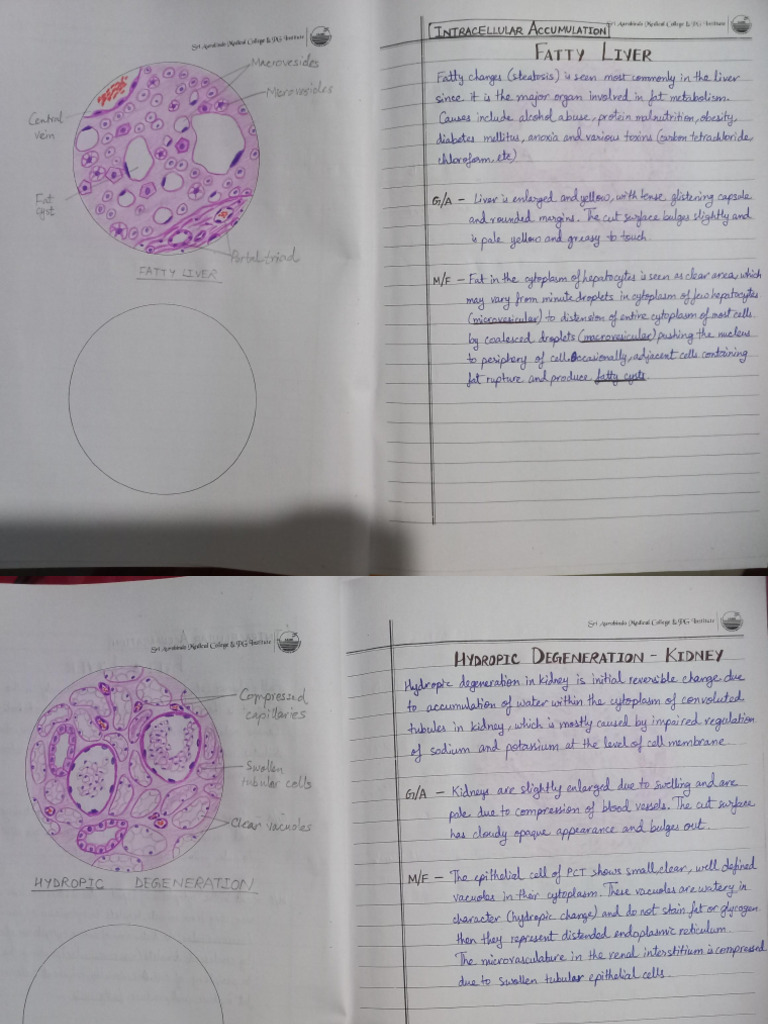 Sri Aurobindo Medical College & PG Institute
Macrovesicles
Microvesicles
Central
vein
Fat
cyst
Portal triad
FATTY LIVER
Sri Aurobindo Medical College & PG Institute
INTRACELLULAR ACCUMULATION
FATTY LIVER
Fatty changes (steatosis) is seen most commonly in the liver
since it is the major organ involved in fat metabolism.
Causes include alcohol abuse, protein malnutrition, obesity,
diabetes mellitus, anoxia and various toxins (carbon tetrachloride,
chloroform, etc)
G/A - Liver is enlarged and yellow, with tense glistening capsule
and rounded margins. The cut surface bulges slightly and
is pale yellow and greasy to touch.
M/E - Fat in the cytoplasm of hepatocytes is seen as clear area, which
may vary from minute droplets in cytoplasm of few hepatocytes
(microvesicular) to distension of entire cytoplasm of most cells
by coalesced droplets (macrovesicular) pushing the nucleus
to periphery of cell. Occasionally, adjacent cells containing
fat rupture and produce fatty cysts.
Sri Aurobindo Medical College & PG Institute
Compressed
capillaries
Swollen
tubular cells
Clear vacuoles
HYDROPIC DEGENERATION
Sri Aurobindo Medical College & PG Institute
HYDROPIC DEGENERATION - KIDNEY
Hydropic degeneration in kidney is initial reversible change due
to accumulation of water within the cytoplasm of convoluted
tubules in kidney, which is mostly caused by impaired regulation
of sodium and potassium at the level of cell membrane.
G/A - Kidneys are slightly enlarged due to swelling and are
pale due to compression of blood vessels. The cut surface
has cloudy opaque appearance and bulges out.
M/E - The epithelial cell of PCT shows small, clear, well defined
vacuoles in their cytoplasm. These vacuoles are watery in
character (hydropic change) and do not stain fat or glycogen
then they represent distended endoplasmic reticulum.
The microvasculature in the renal interstitium is compressed
due to swollen tubular epithelial cells.